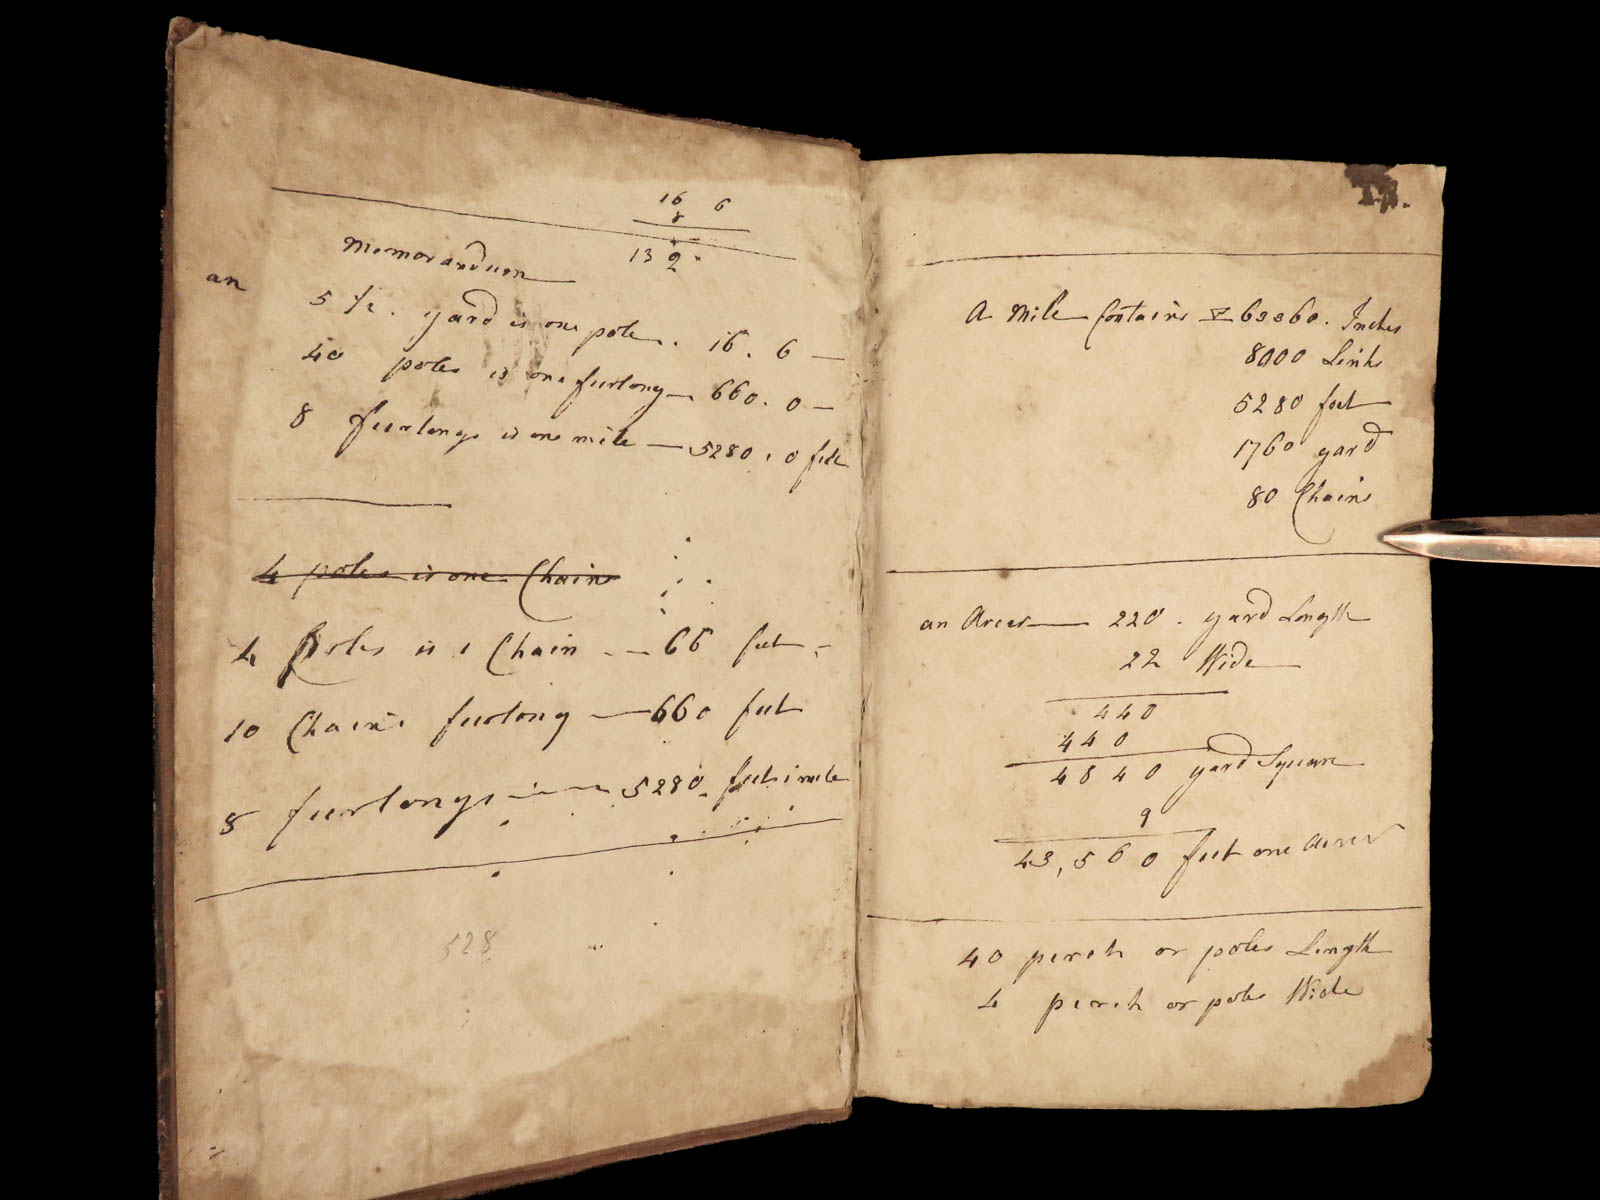 16 6
8
13 2
Memorandum
an
5 1/2. yard is one pole. 16. 6 —
40 poles is one furlong — 660. 0 —
8 furlongs is one mile — 5280. 0 feet
4 poles is one Chain
4 Poles is 1 Chain — 66 feet
10 Chains furlong — 660 feet
8 furlongs — 5280 feet 1 mile
528
A Mile Contains 63360. Inches
8000 Links
5280 feet
1760 yard
80 Chains
an Acres — 220. yard Length
22 Wide
440
440
4840 yard Square
9
43,560 feet one Acres
40 perch or poles Length
4 perch or poles Wide